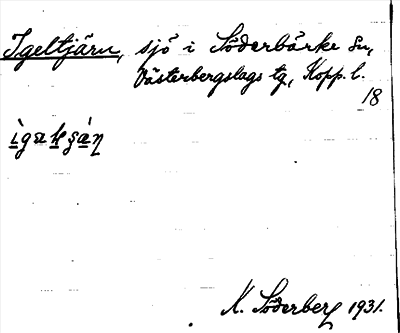 Igeltjärn, sjö i Söderbärke sn,
Västerbergslags tg, Kopp. l.
18
K. Söderberg 1931.